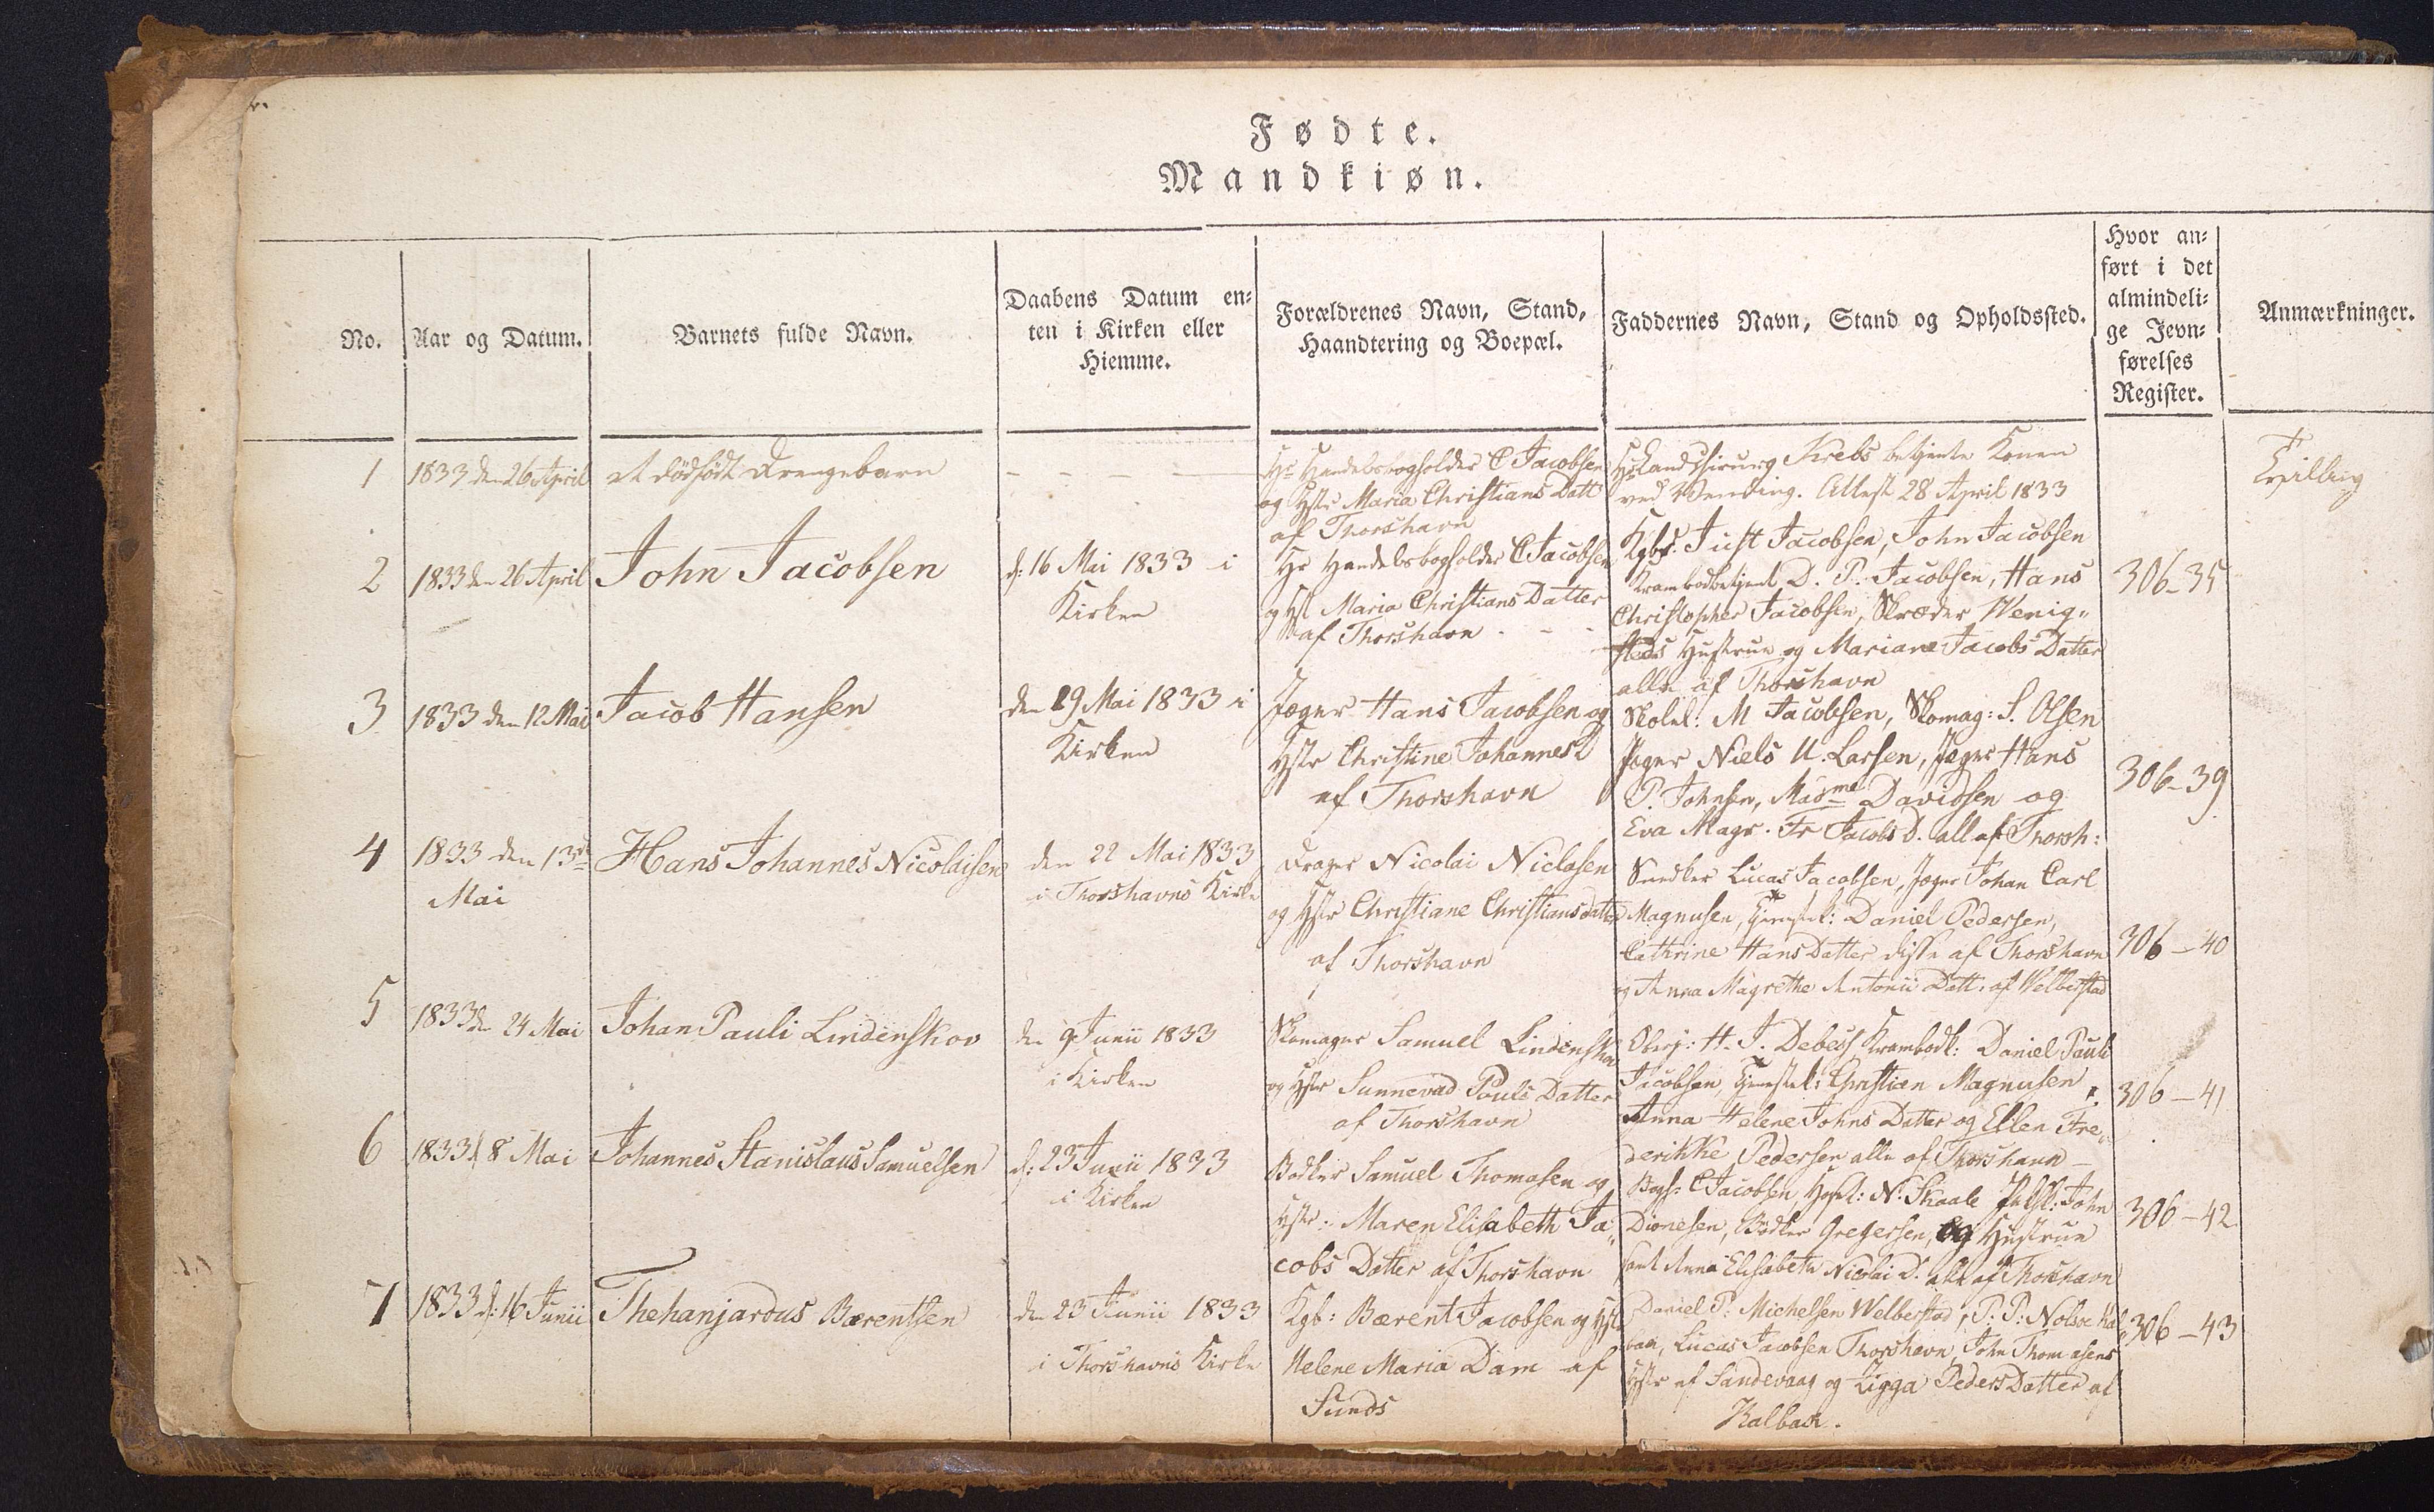 Fødte.
Mandkiøn.
No.
Aar og Datum.
Barnets fulde Navn.
Daabens Datum en-
ten i Kirken eller
Hiemme.
Forældrenes Navn, Stand,
Haandtering og Boepæl.
Faddernes Navn, Stand og Opholdssted.
Hvor an-
ført i det
almindeli-
ge Jevn-
førelses
Register.
Anmærkninger.
1
1833 den 26 April
et dödfödt Drengebarn
Hr Handelsbogholder C Jacobsen
og Hstr Maria Christians Datt
af Thorshavn
Hr Landchirurg Krebs betjente Konen
ved Vending. Attest 28 April 1833
Tvilling
2
1833 den 26 April
John Jacobsen
d: 16 Mai 1833 i
Kirken
Hr Handelsbogholder C Jacobsen
og Hst Maria Christians Datter
af Thorshavn
Kgbs. Just Jacobsen, John Jacobsen
Krambodbetjent D. P. Jacobsen, Hans
Christopher Jacobsen, Skræder Wenig-
steds Hustrue og Mariane Jacobs Datter
alle af Thorshavn
306-35
3
1833 den 12 Mai
Jacob Hansen
den 19 Mai 1833 i
Kirken
Jæger Hans Jacobsen og
Hstr Christine Johannes D
af Thorshavn
Skolel: M Jacobsen, Skomag: S. Olsen
Jæger Niels U. Larsen, Jæger Hans
P. Johnsen, Madme Davidsen og
Eva Magr. Fr Jacobs D. all af Thorsh:
306-39
4
1833 den 13de
Mai
Hans Johannes Nicolaisen
den 22 Mai 1833
i Thorshavns Kirke
Drager Nicolai Niclasen
og Hstr Christiane Christiansdatter
af Thorshavn
Snedker Lucas Jacobsen, Jæger Johan Carl
Magnusen, Tjenestek: Daniel Pedersen,
Cathrine Hans Datter disse af Thorshavn
og Anna Magrethe Antonii Datt: af Welbestad
306-40
5
1833 den 24 Mai
Johan Pauli Lindenskov
den 9 Junii 1833
i Kirken
Skomager Samuel Lindenskov
og Hstr Sunnevad Pouls Datter
af Thorshavn
Oberj: H. J. Debess Krambodk: Daniel Pauli
Jacobsen, Tjenestek: Christian Magnusen,
Anna Helene Johns Datter og Ellen Fre-
derikke Pedersen alle af Thorshavn
306-41
6
1833 d 8 Mai
Johannes Stanislaus Samuelsen
d: 23 Junii 1833
i Kirken
Bødker Samuel Thomasen og
Hstr: Maren Elisabeth Ja-
cobs Datter af Thorshavn
Bogh: C Jacobsen N: Skaale John
Dionesen, Bødker Gregersen, og Hustrue
samt Anna Elisabeth Nicolai D. alle af Thorshavn
306-42
7
1833 d: 16 Junii
Thehanjardus Bærentsen
den 23 Junii 1833
i Thorshavns Kirke
Kgb: Bærent Jacobsen og Hstr
Helene Maria Dam af
Sunds
Daniel P. Michelsen Welbestad, P. P: Nolsøe Kal-
bak, Lucas Jacobsen Thorshavn, John Thomasens
Hstr af Sandevaag og Ligga Peders Datter af
Kalbak.
306-43